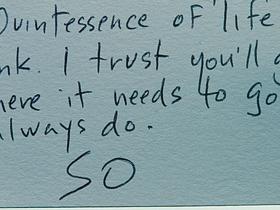 Quintessence of life
I trust you'll
it needs to go
always do.
SO